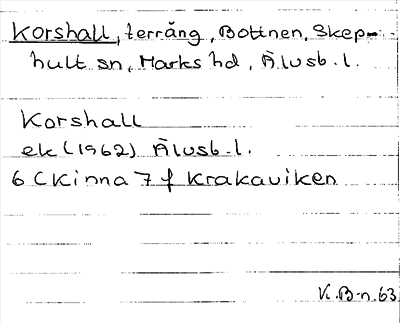 Korshall, terräng, Bottnen, Skep-
hult sn, Marks hd, Älvsb. l.
Korshall
ek (1962) Älvsb. l.
6 C Kinna 7 f Krakaviken
K. B-n. 63